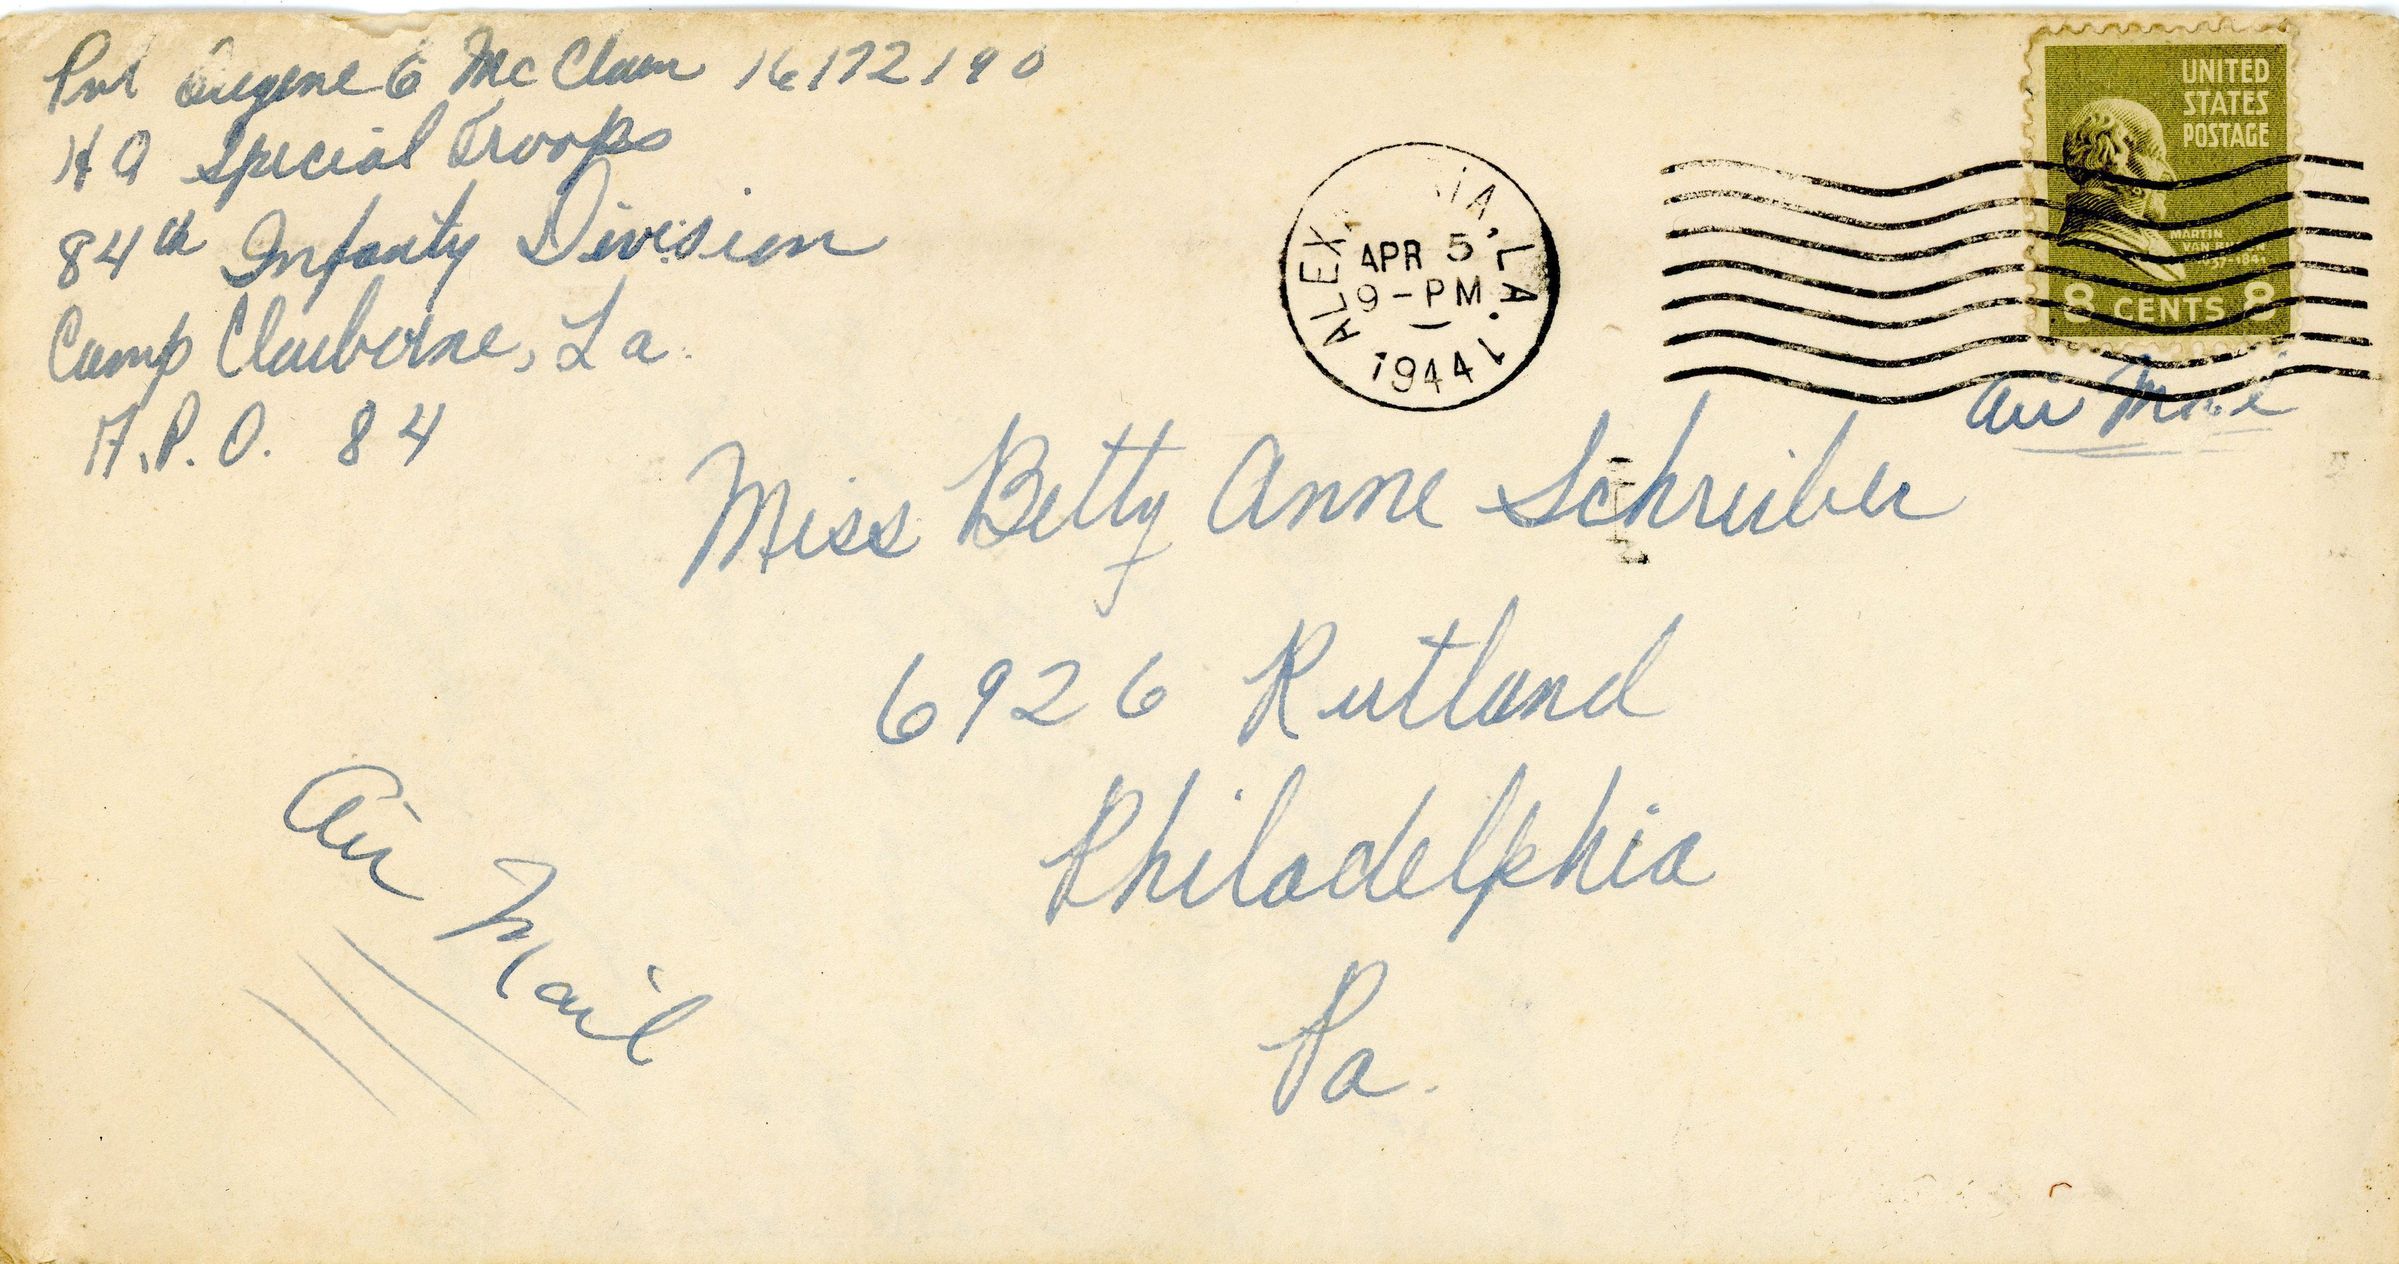 Pvt Eugene E McClain 16172190
HQ Special Troops
84th Infanty Division
Camp Claiborne, La.
A.P.O. 84
UNITED
STATES
POSTAGE
MARTIN
VAN
8 CENTS 8
ALEX IA, LA.
APR 5
9-PM
1944
Air Mail
Miss Betty Anne Schreiber
6926 Rutland
Philadelphia
Pa.
Air Mail